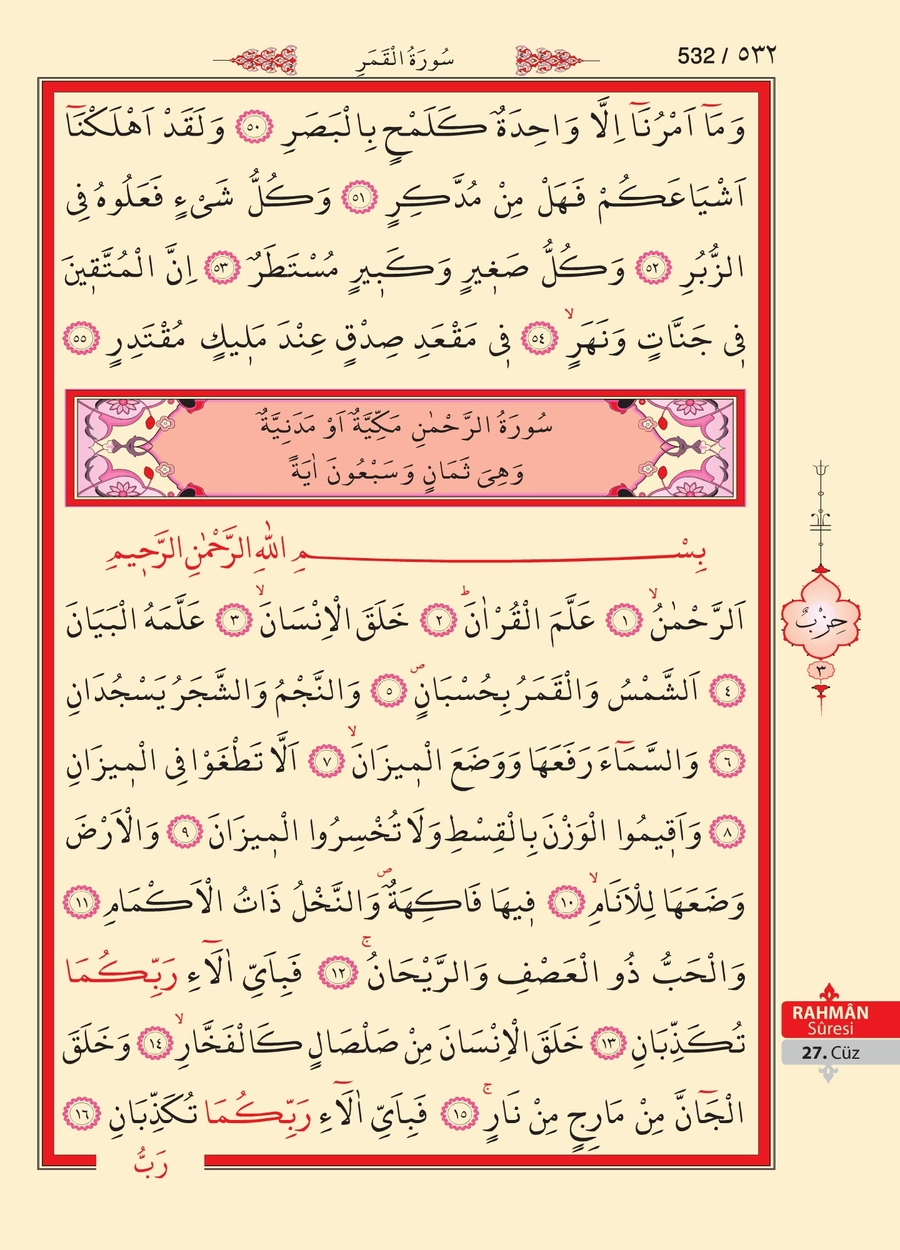 سُورَةُ الْقَمَرِ
532 / ٥٣٢
وَمَٓا اَمْرُنَٓا اِلَّا وَاحِدَةٌ كَلَمْحٍ بِالْبَصَرِ ﴿٥٠﴾ وَلَقَدْ اَهْلَكْنَٓا
اَشْيَاعَكُمْ فَهَلْ مِنْ مُدَّكِرٍ ﴿٥١﴾ وَكُلُّ شَىْءٍ فَعَلُوهُ فِى
الزُّبُرِ ﴿٥٢﴾ وَكُلُّ صَغ۪يرٍ وَكَب۪يرٍ مُسْتَطَرٌ ﴿٥٣﴾ اِنَّ الْمُتَّق۪ينَ
ف۪ى جَنَّاتٍ وَنَهَرٍۙ ﴿٥٤﴾ ف۪ى مَقْعَدِ صِدْقٍ عِنْدَ مَل۪يكٍ مُقْتَدِرٍ ﴿٥٥﴾
سُورَةُ الرَّحْمٰنِ مَكِّيَّةٌ اَوْ مَدَنِيَّةٌ
وَهِىَ ثَمَانٍ وَسَبْعُونَ اٰيَةً
بِسْمِ اللّٰهِ الرَّحْمٰنِ الرَّح۪يمِ
اَلرَّحْمٰنُۙ ﴿١﴾ عَلَّمَ الْقُرْاٰنَۜ ﴿٢﴾ خَلَقَ الْاِنْسَانَۙ ﴿٣﴾ عَلَّمَهُ الْبَيَانَ
﴿٤﴾ اَلشَّمْسُ وَالْقَمَرُ بِحُسْبَانٍۖ ﴿٥﴾ وَالنَّجْمُ وَالشَّجَرُ يَسْجُدَانِ
﴿٦﴾ وَالسَّمَٓاءَ رَفَعَهَا وَوَضَعَ الْم۪يزَانَۙ ﴿٧﴾ اَلَّا تَطْغَوْا فِى الْم۪يزَانِ
﴿٨﴾ وَاَق۪يمُوا الْوَزْنَ بِالْقِسْطِ وَلَا تُخْسِرُوا الْم۪يزَانَ ﴿٩﴾ وَالْاَرْضَ
وَضَعَهَا لِلْاَنَامِۙ ﴿١٠﴾ ف۪يهَا فَاكِهَةٌۖ وَالنَّخْلُ ذَاتُ الْاَكْمَامِ ﴿١١﴾
وَالْحَبُّ ذُو الْعَصْفِ وَالرَّيْحَانُۚ ﴿١٢﴾ فَبِاَىِّ اٰلَٓاءِ رَبِّكُمَا
تُكَذِّبَانِ ﴿١٣﴾ خَلَقَ الْاِنْسَانَ مِنْ صَلْصَالٍ كَالْفَخَّارِۙ ﴿١٤﴾ وَخَلَقَ
الْجَٓانَّ مِنْ مَارِجٍ مِنْ نَارٍۚ ﴿١٥﴾ فَبِاَىِّ اٰلَٓاءِ رَبِّكُمَا تُكَذِّبَانِ ﴿١٦﴾
رَبُّ
حِزْبٌ
٣
RAHMÂN
Sûresi
27. Cüz